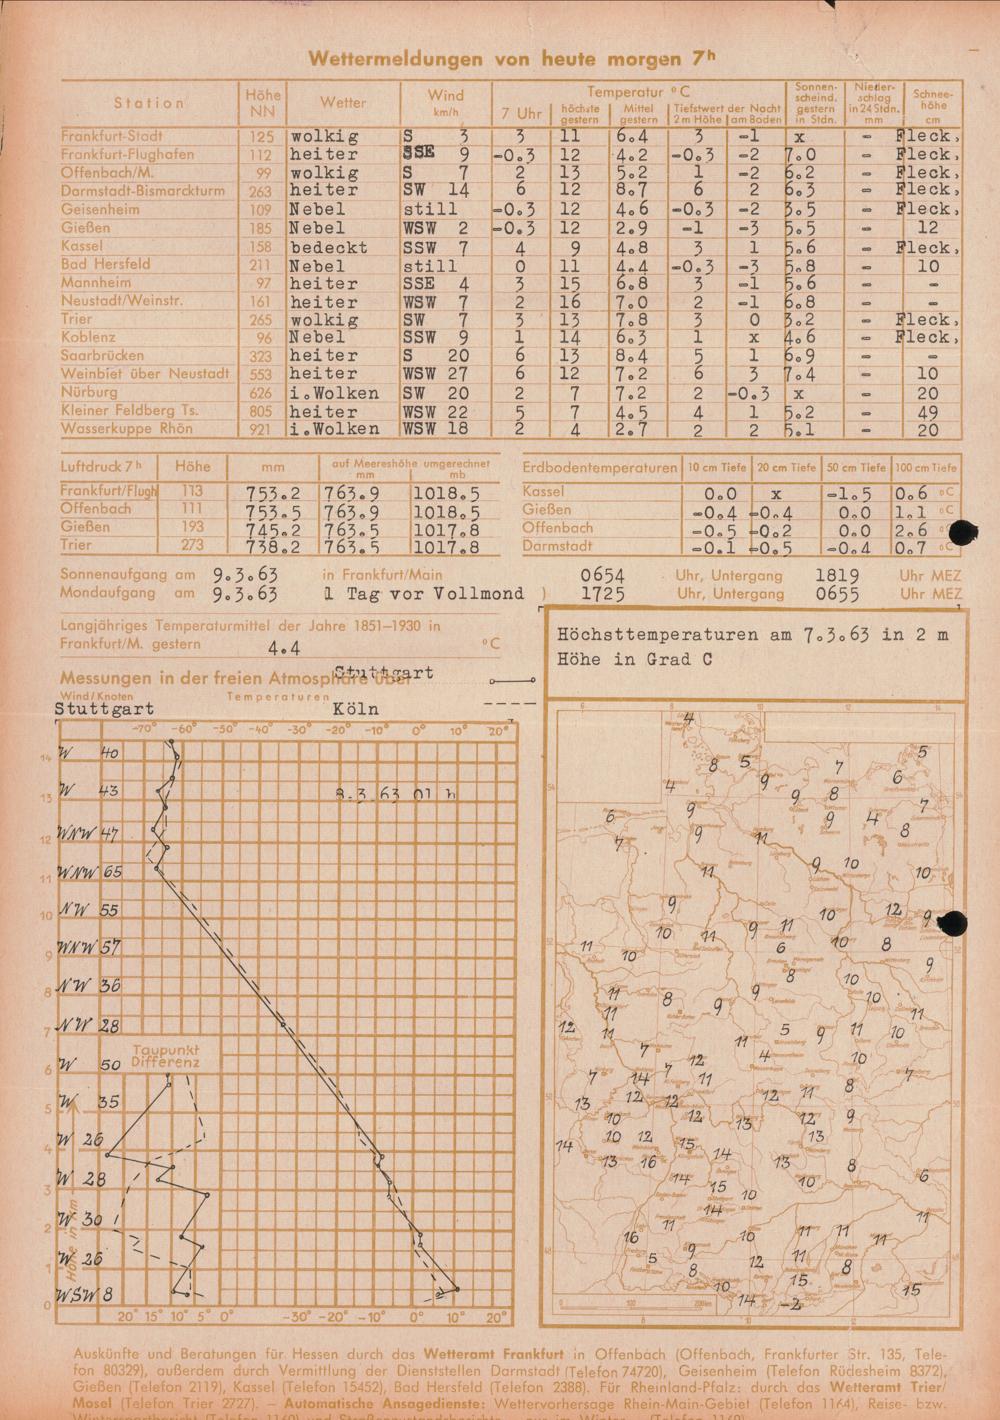 Wettermeldungen von heute morgen 7ʰ
Station Höhe NN Wetter Wind km/h Temperatur °C Sonnen-scheind. gestern in Stdn. Nieder-schlag in 24 Stdn. mm Schnee-höhe cm
7 Uhr höchste gestern Mittel gestern Tiefstwert der Nacht 2 m Höhe am Boden
Frankfurt-Stadt 125 wolkig S 3 3 11 6.4 3 -1 x - Fleck.
Frankfurt-Flughafen 112 heiter SSE 9 -0.3 12 4.2 -0.3 -2 7.0 - Fleck.
Offenbach/M. 99 wolkig S 7 2 13 5.2 1 -2 6.2 - Fleck.
Darmstadt-Bismarckturm 263 heiter SW 14 6 12 8.7 6 2 6.3 - Fleck.
Geisenheim 109 Nebel still -0.3 12 4.6 -0.3 -2 3.5 - Fleck.
Gießen 185 Nebel WSW 2 -0.3 12 2.9 -1 -3 5.5 - 12
Kassel 158 bedeckt SSW 7 4 9 4.8 3 1 5.6 - Fleck.
Bad Hersfeld 211 Nebel still 0 11 4.4 -0.3 -3 5.8 - 10
Mannheim 97 heiter SSE 4 3 15 6.8 3 -1 5.6 - -
Neustadt/Weinstr. 161 heiter WSW 7 2 16 7.0 2 -1 6.8 - -
Trier 265 wolkig SW 7 3 13 7.8 3 0 3.2 - Fleck.
Koblenz 96 Nebel SSW 9 1 14 6.3 1 x 4.6 - Fleck.
Saarbrücken 323 heiter S 20 6 13 8.4 5 1 6.9 - -
Weinbiet über Neustadt 553 heiter WSW 27 6 12 7.2 6 3 7.4 - 10
Nürburg 626 i.Wolken SW 20 2 7 7.2 2 -0.3 x - 20
Kleiner Feldberg Ts. 805 heiter WSW 22 5 7 4.5 4 1 5.2 - 49
Wasserkuppe Rhön 921 i.Wolken WSW 18 2 4 2.7 2 2 5.1 - 20
Luftdruck 7ʰ Höhe mm auf Meereshöhe umgerechnet mm mb
Frankfurt/Flugh 113 753.2 763.9 1018.5
Offenbach 111 753.5 763.9 1018.5
Gießen 193 745.2 763.5 1017.8
Trier 273 738.2 763.5 1017.8
Erdbodentemperaturen 10 cm Tiefe 20 cm Tiefe 50 cm Tiefe 100 cm Tiefe
Kassel 0.0 x -1.5 0.6 °C
Gießen -0.4 -0.4 0.0 1.1 °C
Offenbach -0.5 -0.2 0.0 2.6 °C
Darmstadt -0.1 -0.5 -0.4 0.7 °C
Sonnenaufgang am 9.3.63 in Frankfurt/Main 0654 Uhr, Untergang 1819 Uhr MEZ
Mondaufgang am 9.3.63 1 Tag vor Vollmond ) 1725 Uhr, Untergang 0655 Uhr MEZ
Langjähriges Temperaturmittel der Jahre 1851–1930 in
Frankfurt/M. gestern 4.4 °C
Messungen in der freien Atmosphäre über Stuttgart
Wind/Knoten Temperaturen
Stuttgart Köln
-70° -60° -50° -40° -30° -20° -10° 0° 10° 20°
8.3.63 01 h
W 40
14
W 43
13
WNW 47
12
WNW 65
11
NW 55
10
WNW 57
9
NW 36
8
NW 28
7
W 50
6
Taupunkt
Differenz
W 35
5
W 26
4
W 28
3
W 30
2
W 26
1
WSW 8
0
Höhe in km
20° 15° 10° 5° 0° -30° -20° -10° 0° 10° 20°
Höchsttemperaturen am 7.3.63 in 2 m
Höhe in Grad C
6 8 10 12 14
4
8 5 7 5
4 9 6
9 8
6 9 9 4 7
7 9 11 8
11 9 10 10
9 10 12 9
10 11 9 11
11 10 6 10 8
8 10 9
11 8 9 9 10
11 11
12 11 5 9 11 10
7 11 4 10
12
7 14 7 11 8 7
13 12 12 12 11
10 12 13 12 9
14 10 12 15 13
13 16 14 13 8
14 15 10 10 6
14 11
16 11 10 11 11 11
5 9 12 11 8
8 10 15 15
14 -2
Auskünfte und Beratungen für Hessen durch das Wetteramt Frankfurt in Offenbach (Offenbach, Frankfurter Str. 135, Tele-
fon 80329), außerdem durch Vermittlung der Dienststellen Darmstadt (Telefon 74720), Geisenheim (Telefon Rüdesheim 8372),
Gießen (Telefon 2119), Kassel (Telefon 15452), Bad Hersfeld (Telefon 2388). Für Rheinland-Pfalz: durch das Wetteramt Trier/
Mosel (Telefon Trier 2727). – Automatische Ansagedienste: Wettervorhersage Rhein-Main-Gebiet (Telefon 1164), Reise- bzw.
Wintersportbericht (Telefon 1160) und Straßenzustandsberichte